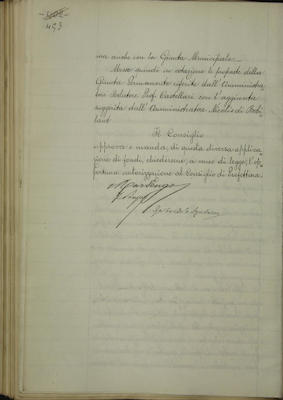 493
ma anche con la Giunta Municipale.
Messa quindi in votazione la proposta della
Giunta Permanente riferita dall'Amministra
tore Relatore Prof. Castellari con l'aggiunta
suggerita dall'Amministratore Nicolis di Robi
lant
Il Consiglio
approva e manda, di questa diversa applica
zione di fondi, chiedersene, a mio di legge, l'op
portuna autorizzazione al Consiglio di Prefettura.